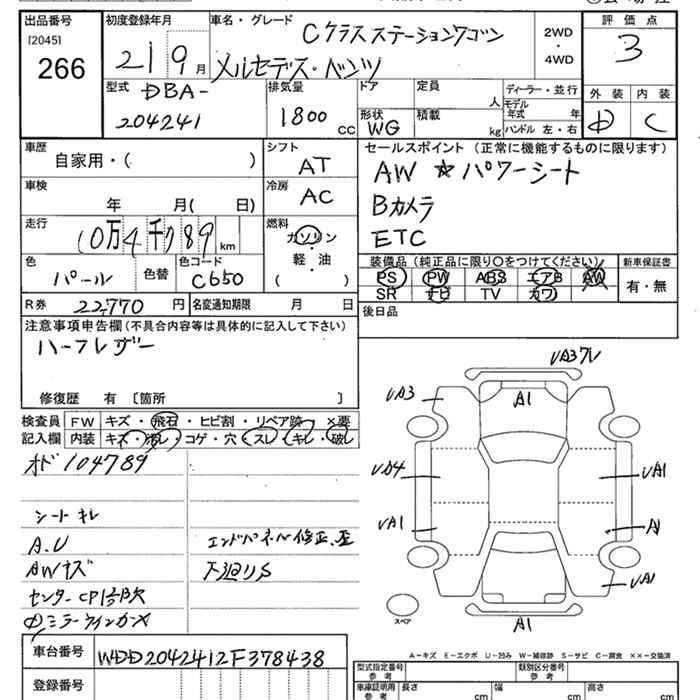 出品番号
[2045]
266
初度登録年月
21 9月
車名・グレード
Cクラスステーションワゴン
メルセデス・ベンツ
2WD
・
4WD
評価点
3
外装 内装
D C
型式
DBA-
204241
排気量
1800 CC
ドア
定員 人
形状
WG
積載 kg
ディーラー・並行
モデル年式 年
ハンドル 左・右
車歴
自家用・( )
シフト
AT
車検
年 月( 日)
冷房
AC
走行
10万4千789 km
燃料
ガソリン
・
軽・油
( )
色
パール
色替
色コード
C650
R券 22,770 円
名変通知期限 月 日
セールスポイント(正常に機能するものに限ります)
AW ☆パワーシート
Bカメラ
ETC
装備品(純正品に限り○をつけてください)
PS PW ABS エアB AW
SR ナビ TV カワ
新車保証書
有・無
後日品
注意事項申告欄(不具合内容等は具体的に記入して下さい)
ハーフレザー
修復歴 有〔箇所 〕
検査員
記入欄
FW キズ・飛石・ヒビ割・リペア跡 ×要
内装 キズ・汚れ・コゲ・穴・スレ・キレ・破レ
オド104789
シートキレ
A.U
AWキズ
エンドパネル修正、歪
下廻りS
車台番号 WDD2042412F378438
登録番号
UA3
A1
UA4
UA1
UA1
A1
UA1
A1
スペア
A-キズ E-エクボ U-凹み W-補修跡 S-サビ C-腐食 ××-交換済
型式指定番号
参考
類別区分番号
参考
車庫証明用
参考
長さ cm
幅 cm
高さ cm